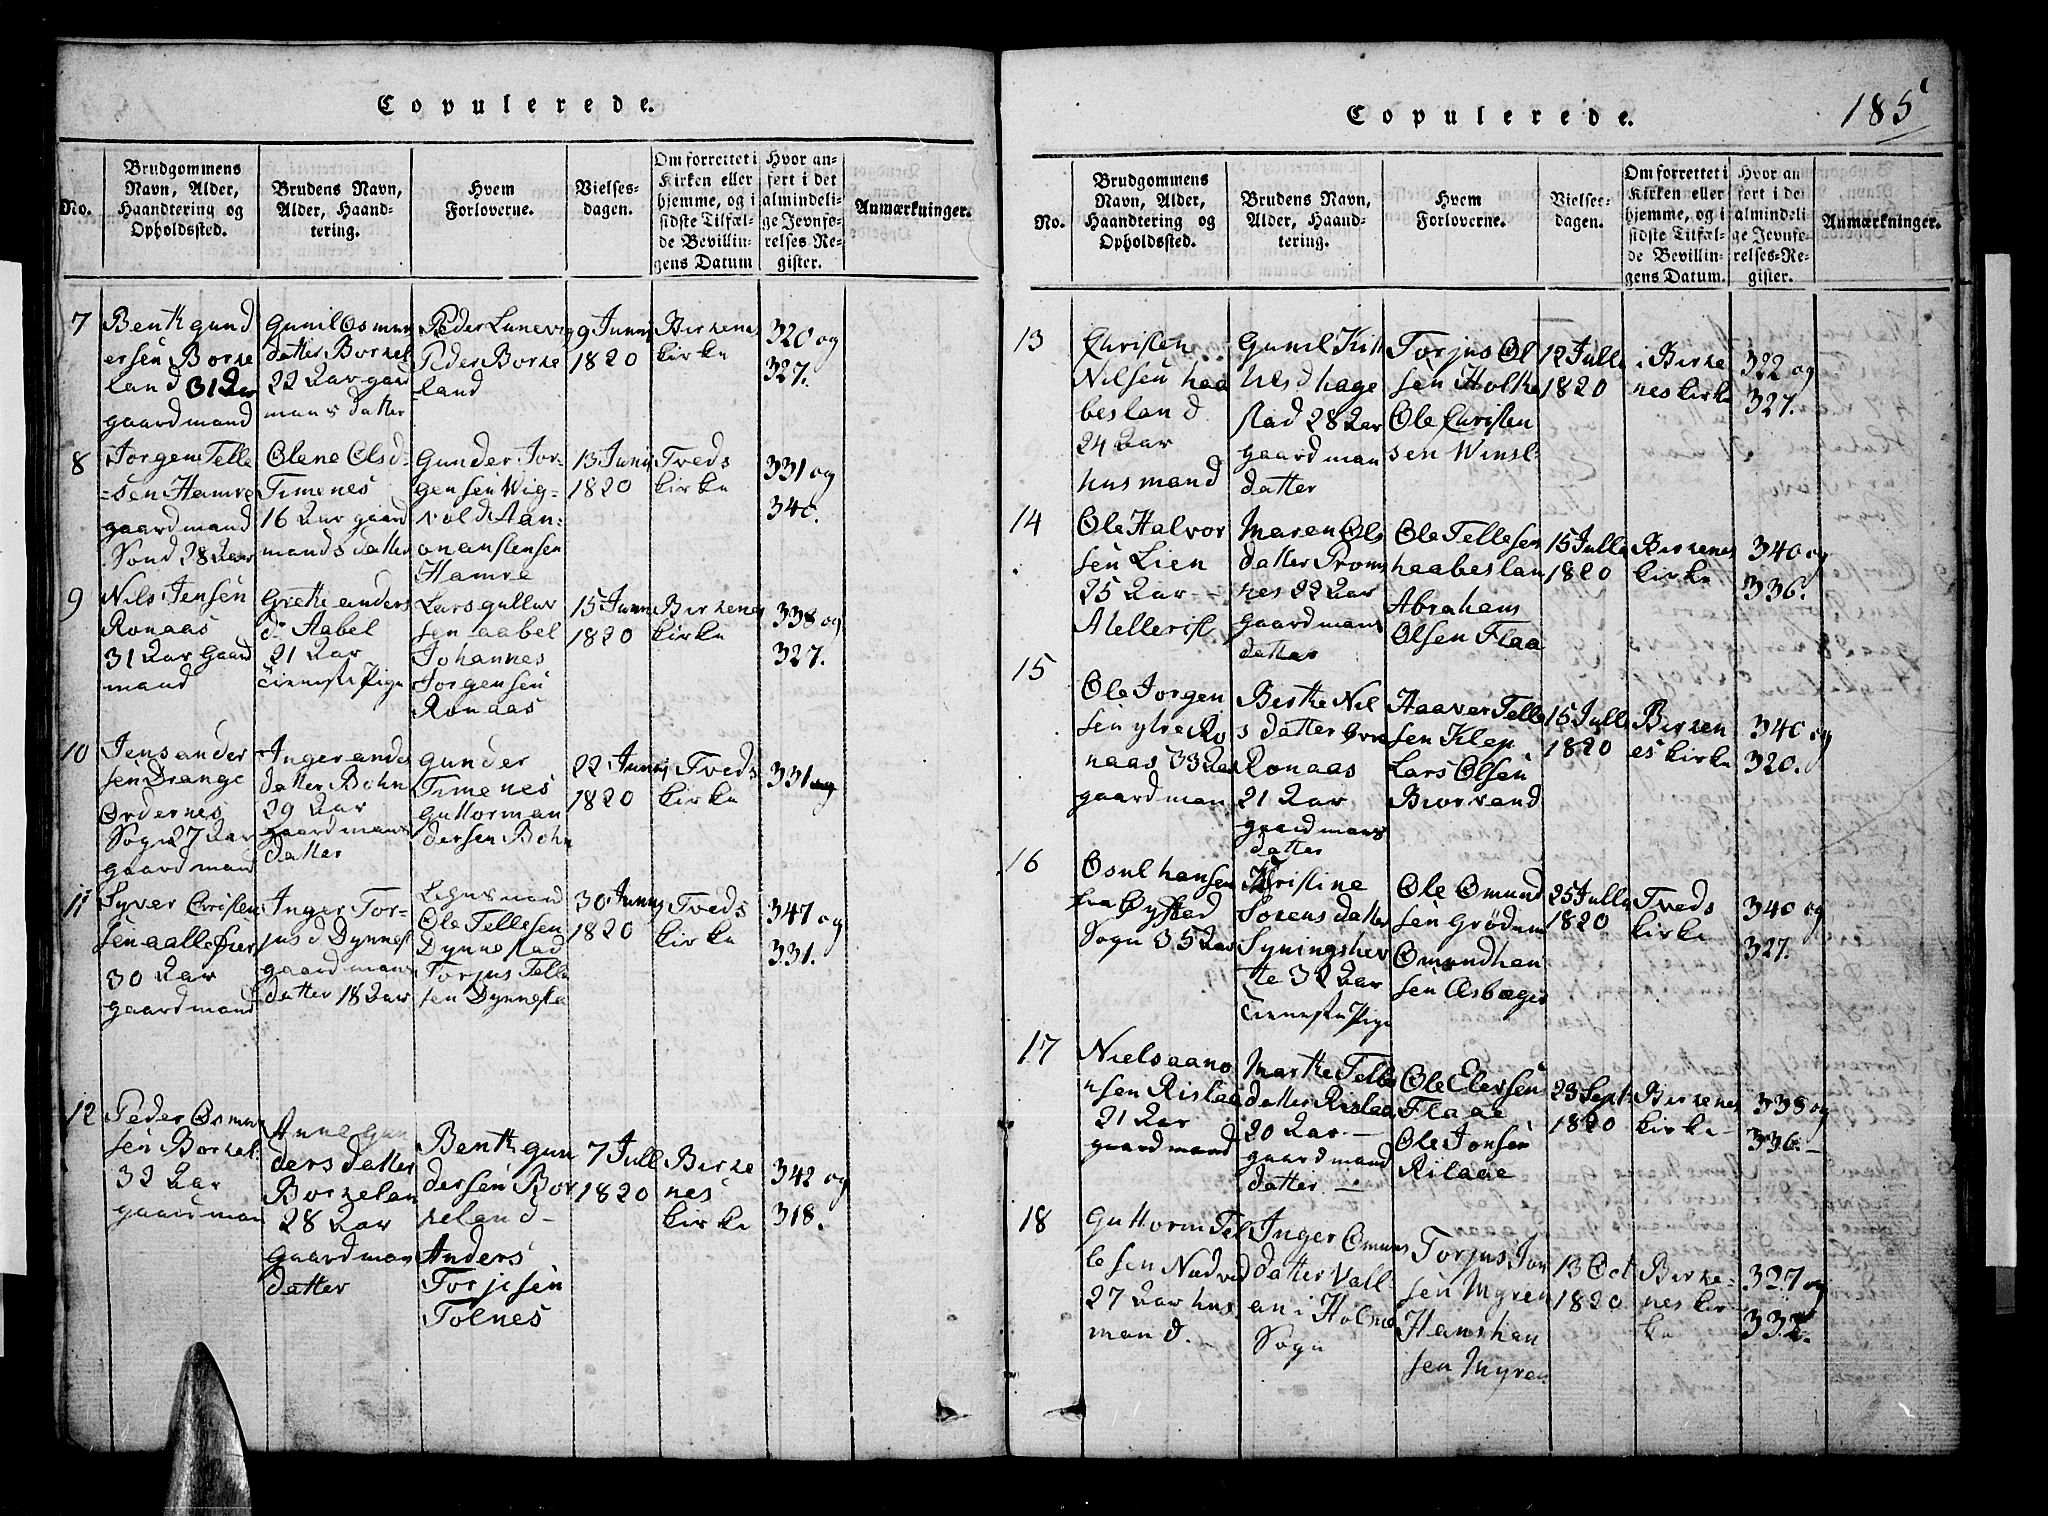 Copulerede.
No.
Brudgommens
Navn, Alder,
Haandtering og
Opholdssted.
Brudens Navn,
Alder, Haand-
tering.
Hvem
Forloverne.
Vielses-
dagen.
Om forrettet i
Kirken eller
hjemme, og i
sidste Tilfæl-
de Bevillin-
gens Datum
Hvor an-
ført i det
almindeli-
ge Jevnfø-
relses-Re-
gister.
Anmærkninger.
7
Bentk gund
ersen Borke
land 31 Aar
gaardmand
Gunil Osmun
datter Borkel
22 Aar gaar
mans datter
Peder Lunevig
Peder Borke
land
9 Junij
1820
Birkenes
kirke
320 og
327.
8
Jorgen Telle
-sen Hamre
gaardmand
Sond 28 Aar
Olene Olsd-
Timenes
16 Aar gaard
mands datter
Gunder Jor-
gensen Wig-
vold Aan-
onanstensen
Hamre
13 Junij
1820
Tveds
kirke
331 og
340.
9
Nils Jensen
Ronaas
31 Aar Gaard
mand
Grethe anders
dr Aabel
21 Aar
Tienneste Pige
Lars gullav
sen aabel
Johannes
Jorgensen
Ronaas
15 Junij
1820
Birkenes
kirke
338 og
327.
10
Jens ander
sen Drange
Ordernes
Sogn 27 Aar
gaardmand
Inger anders
datter Bohn
29 Aar
gaardmans
datter
Gunder
Timenes
Guttorman
dersen Bohn
22 Junij
1820
Tveds
kirke
331 og
11
Syver Christen
sen aallefier
30 Aar
gaardmand
Inger Tor-
jus d Dynnest
gaardmans
datter 18 Aar
Lehnsmand
Ole Tellesen
Dynnestad
Torjus Telle
sen Dynnesta
30 Junij
1820
Tveds
kirke
347 og
331.
12
Peder Osmun
sen Borkel.
32 Aar
gaardman
Anne Gun
ders datter
Borkelan
28 Aar
Gaardman
datter
Bentk gun
dersen Bor
keland-
Anders
Torjesen
Tolnes
7 Jull
1820
Birke
nes
kirke
342 og
318.
Copulerede.
185
No.
Brudgommens
Navn, Alder,
Haandtering og
Opholdssted.
Brudens Navn,
Alder, Haand-
tering.
Hvem
Forloverne.
Vielses-
dagen.
Om forrettet i
Kirken eller
hjemme, og i
sidste Tilfæl-
de Bevillin-
gens Datum.
Hvor an
ført i de
almindeli
ge Jevnfø-
relses-Re-
gister.
Anmærkninger.
13
Christen
Nilsen haa
besland
24 Aar
husmand
Gunil Kist
nes d hage
stad 28 Aar
gaardman
datter
Torjus Ol
sen Holke
Ole Christen
sen Winsl-
12 Julli
1820
i Birke
nes kirke
322 og
327.
14
Ole Halvor
sen Lien
25 Aar -
Mellerist
Maren Ols
datter Trom
nes 22 Aar
gaardmans
datter
Ole Tellesen
haabeslan
Abraham
Olsen Flaa
15 Julli
1820
Birkenes
kirke
340 og
336.
15
Ole Jorgen
sen ytre Ro
naas 33 Aar
gaardman
Berthe Nil
s datter øvre
Ronaas
21 Aar
gaardmans
datter
Haaver Telle
sen Klep
Lars Olsen
Biorvand
15 Julli
1820
Birken
es kirke
340 og
320.
16
Osul hansen
fra Øysted
Sogn 35 Aar
Kristine
Sorens datter
Syningshei
te 32 Aar
Tienneste Pige
Ole Omund
sen Grødum
Omund han
sen Osbæger
25 Julli
1820
Tveds
kirke
340 og
327.
17
Niels aano
nsen Rislaa
21 Aar
gaardmand
Marthe Telle
datter Rislaa
20 Aar. -
gaardmand
datter. -
Ole Elevsen
Flaae
Ole Jonsen
Rilaae
23 Sept.
1820
Birkenes
kirke -
338 og
336. -
18
Guttorm Tel
lesen Nudved
27 Aar hus
mand.
Inger Omuns
datter Vall
an i Holme
Sogn
Torjus Jon
sen Myren
Hans han
sen Myren
13 Oct
1820
Birke-
nes kir-
ke
327 og
332.